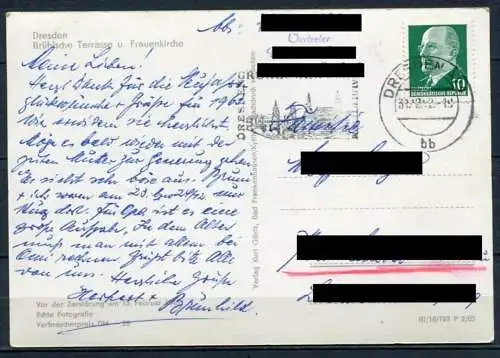 Dresden
Brühlsche Terrasse u. Frauenkirche
Meine Lieben!
Herzl. Dank für die Neujahrs-
glückwünsche + Grüße für 1963
Wir erwidern sie herzlichst.
Möge es bald wieder mit der
guten Mutter zur Genesung gehen.
Es sieht sehr böse aus. Brunh.
+ ich waren am 23. 24/12.
dort. Für Opa ist es eine
große Aufgabe. In dem Alter
muß man mit allem bei
Omi rechnen. Grüßt bitte Alle
von uns. Herzliche Grüße
Herbert +
Brünhild.
Vor der Zerstörung am 13. Februar
Echte Fotografie
Verbraucherpreis DM
Verlag Kurt Görtz, Bad Frankenhausen/Kyffh.
Abs.
Vertreter
DRESDEN
DRESDEN
bb
DEUTSCHE
DEMOKRATISCHE REPUBLIK
10